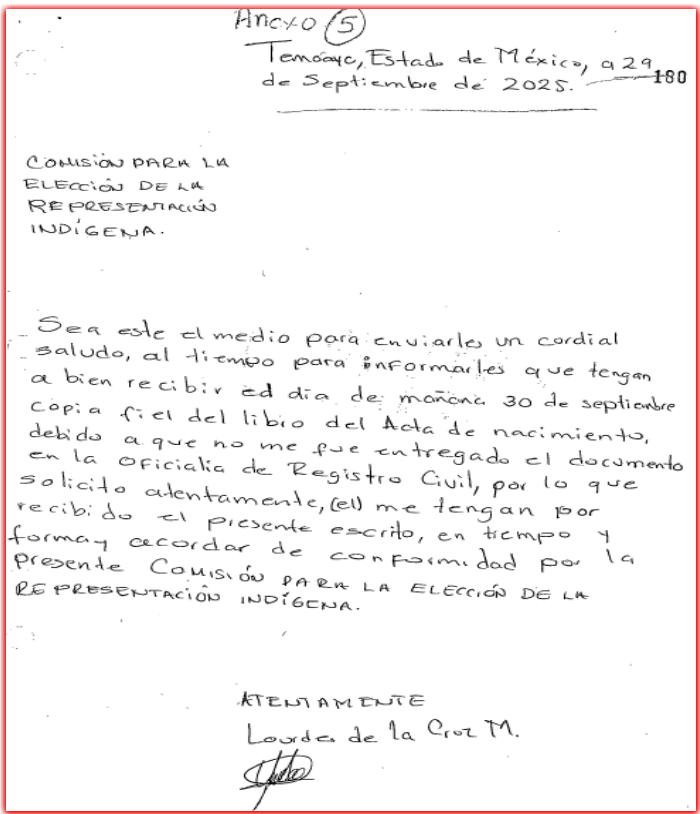 Anexo 5
Temoaya, Estado de México, a 29
180
de Septiembre de 2025.
COMISIÓN PARA LA
ELECCIÓN DE LA
REPRESENTACIÓN
INDÍGENA.
Sea este el medio para enviarles un cordial
saludo, al tiempo para informarles que tengan
a bien recibir ed día de mañana 30 de septiembre
copia fiel del libro del Acta de nacimiento,
debido a que no me fue entregado el documento
en la Oficialia de Registro Civil, por lo que
solicito atentamente, (el) me tengan por
recibido el presente escrito, en tiempo y
forma y acordar de conformidad por la
presente COMISIÓN PARA LA ELECCIÓN DE LA
REPRESENTACIÓN INDÍGENA.
ATENTAMENTE
Lourdes de la Cruz M.